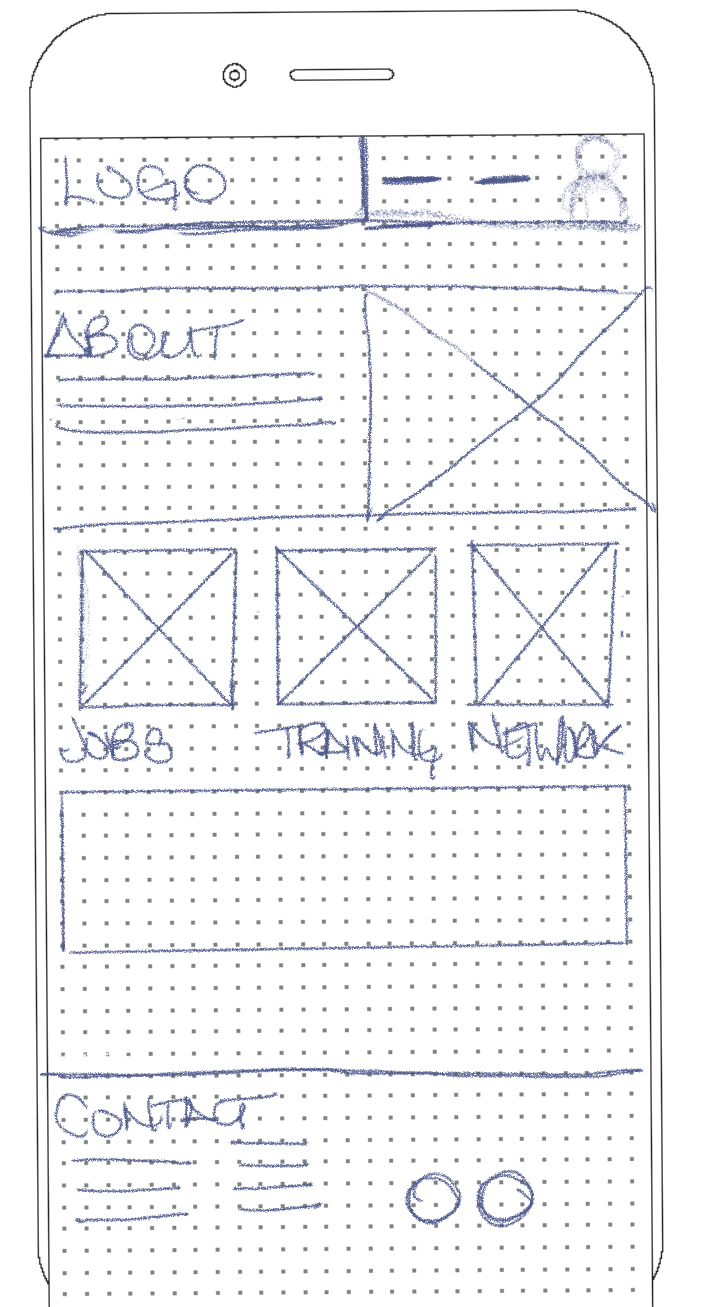 LOGO
ABOUT
JOBS TRAINING NETWORK
CONTACT